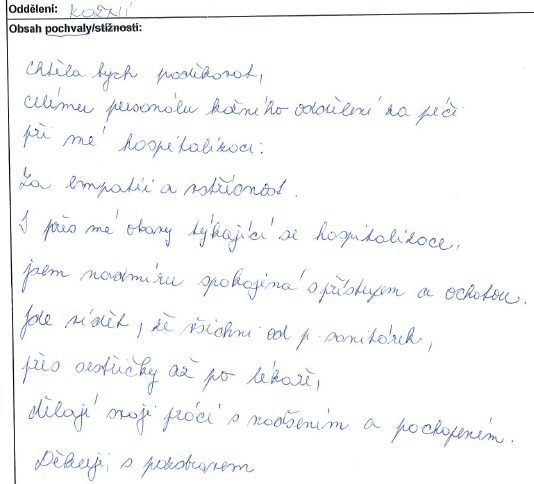 Oddělení: KOŽNÍ
Obsah pochvaly/stížnosti:
chtěla bych poděkovat,
celému personálu kožního oddělení za péči
při mé hospitalizaci.
Za empatii a vstřícnost.
I přes mé obavy týkající se hospitalizace,
jsem nadmíru spokojená s přístupem a ochotou.
Jde vidět, že všichni od p. sanitárek,
přes sestřičky až po lékaře,
dělají svoji práci s nadšením a pochopením.
Děkuji, s pozdravem